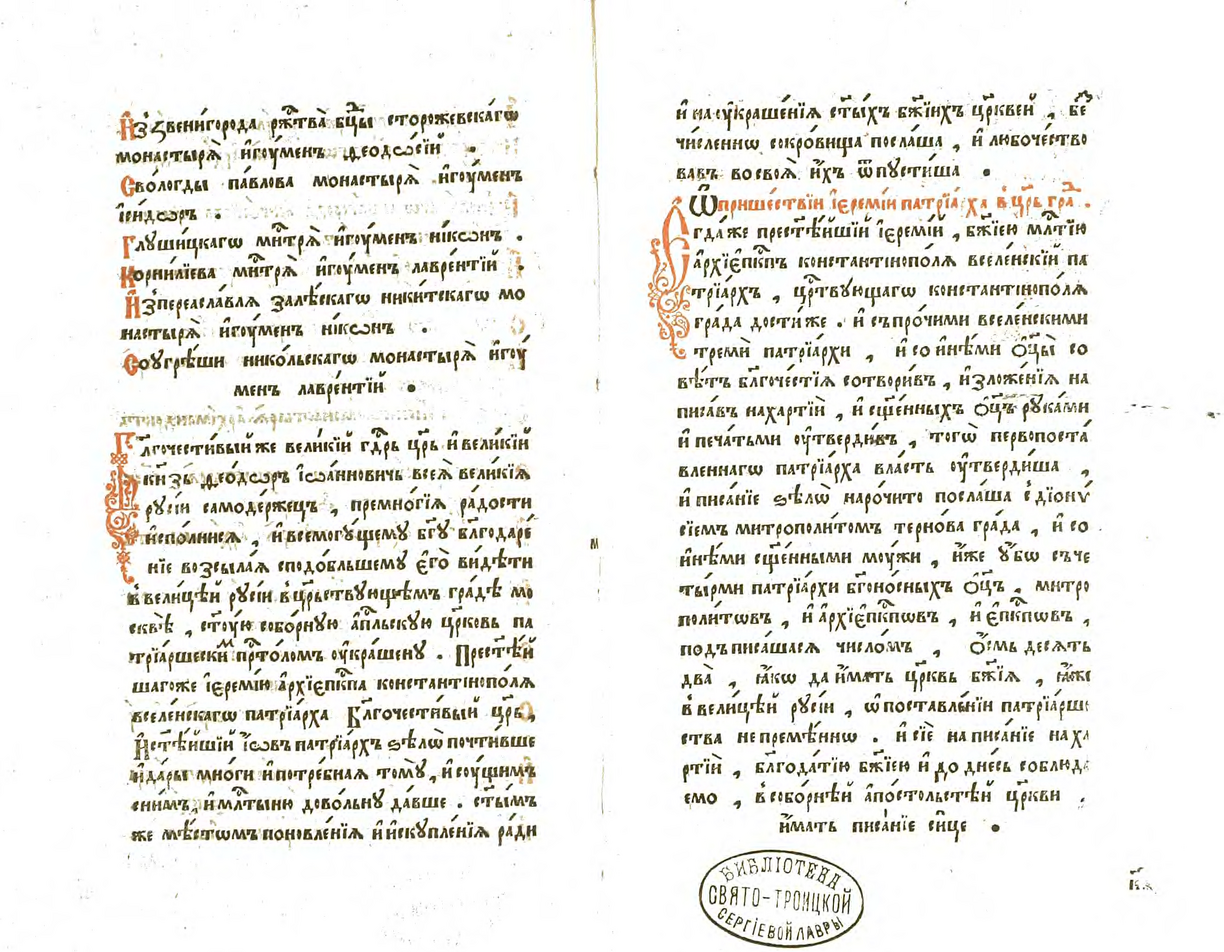 И҆з̾ звени́города рж҃тва̀ бц҃ы сторожевскагѡ
монастырѧ̀ и҆гоу́менъ ѳеодѡсїй .
Сво́логды па́влова монастырѧ̀ и҆гоу́менъ
і҆си́дѡръ .
Глꙋшицкагѡ мн҃трѧ̀ и҆гоу́менъ нікѡнъ .
Корни́лїева мн҃трѧ̀ и҆гоу́менъ лаврентїй .
И҆зпереаславлѧ залѣ́скагѡ никитскагѡ мо
настырѧ̀ и҆гоу́менъ нікѡнъ .
Соугрѣ́ши нико́льскагѡ монастырѧ̀ и҆гоу́
менъ лавре́нтїй .
Бл҃гочести́выйже вели́кїй гд҃рь цр҃ь и҆вели́кїй
кн҃зь ѳео́дѡръ і҆ѡа́нновичь всеѧ̀ вели́кїѧ
рꙋсі́и самоде́ржецъ , премно́гїѧ ра́дости
и҆спо́лнисѧ , и҆всемогꙋ́щемꙋ бг҃ꙋ бл҃годаре́
нїе возсыла́ѧ сподо́бльшемꙋ є҆го̀ ви́дѣти
ввели́цѣй рꙋсі́и вцр҃ьствꙋющемъ гра́дѣ мо
сквѣ̀ , ст҃ꙋю собо́рнꙋю а҆пⷭ҇льскꙋю цр҃ковь па
трїа́ршескиᷟ прⷭ҇то́ломъ оу҆кра́шенꙋ . Прест҃ѣ́й
шагоже і҆еремі́ю а҆рхїєпⷭ҇кпа константїнопо́лѧ
вселе́нскагѡ патрїа́рха Бл҃гочести́вый цр҃ь ,
И҆ст҃ѣ́йшїй і҆ѡ́въ патрїа́рхъ ѕѣлѡ̀ почти́вше
и҆да́ры мно́ги и҆потре́бнаѧ томꙋ̀ , и҆соу́щимъ
сни́мъ , и҆мл҃тыню дово́льнꙋ да́вше . ст҃ы́мъ
же мѣ́стѡмъ поновле́нїѧ и҆и҆скꙋпле́нїѧ ра́ди
и҆ на оу҆краше́нїѧ ст҃ы́хъ бж҃їихъ цр҃кве́й , бе
чи́сленнѡ сокрѡ́вища посла́ша , и҆ любоче́ство
вавъ восвоѧ̀ и҆́хъ ѿпꙋсти́ша .
Ѡ҆прише́ствїи і҆еремі́и патрїа́рха вцр҃ь гра́д .
Є҆гда́же прест҃ѣ́йшїй і҆еремі́й , бж҃їею мл҃тїю
а҆рхїєпⷭ҇кпъ константїнопо́лѧ вселе́нскїй па
трїа́рхъ , цр҃твꙋющагѡ константїнопо́лѧ
гра́да дости́же . и҆ съпро́чими вселе́нскими
тремѝ патрїа́рхи , и҆ со и҆нѣ́ми ѻ҆ц҃ы̀ со
вѣ́тъ бл҃гоче́стїѧ сотвори́въ , и҆зложе́нїѧ на
писа́въ нахарті́и , и҆ сщ҃е́нныхъ ѻ҆ц҃ъ рꙋка́ми
и҆ печа́тьми оу҆тверди́въ , тогѡ̀ первопоста́
вленнагѡ патрїа́рха вла́сть оу҆тверди́ша ,
и҆ писа́нїе ѕѣлѡ̀ наро́чито посла́ша с дїонꙋ́
сїемъ митрополи́томъ те́рнова гра́да , и҆ со
и҆нѣ́ми сщ҃е́нными моу́жи , и҆́же оу҆́бѡ съче
ты́рми патрїа́рхи бг҃оно́сныхъ ѻ҆ц҃ъ , митро
поли́тѡвъ , и҆ а҆рхїєпⷭ҇кпѡвъ , и҆ є҆пⷭ҇кпѡвъ ,
подъписа́шасѧ число́мъ , ѻ҆́смь десѧ́тъ
два̀ , ꙗ҆́кѡ да и҆́мать цр҃квь бж҃їѧ , ꙗ҆́же
ввели́цѣй рꙋсі́и , ѡ҆поставле́нїи патрїа́рше
ства непреме́ннѡ . и҆ сїѐ написа́нїе наха
рті́и , бл҃года́тїю бж҃їею и҆ до дне́сь соблюда́
емо , всобо́рнѣй а҆по́стольстѣй цр҃кви .
и҆́мать писа́нїе си́це .
БИБЛІОТЕКА
СВЯТО-ТРОИЦКОЙ
СЕРГІЕВОЙ ЛАВРЫ